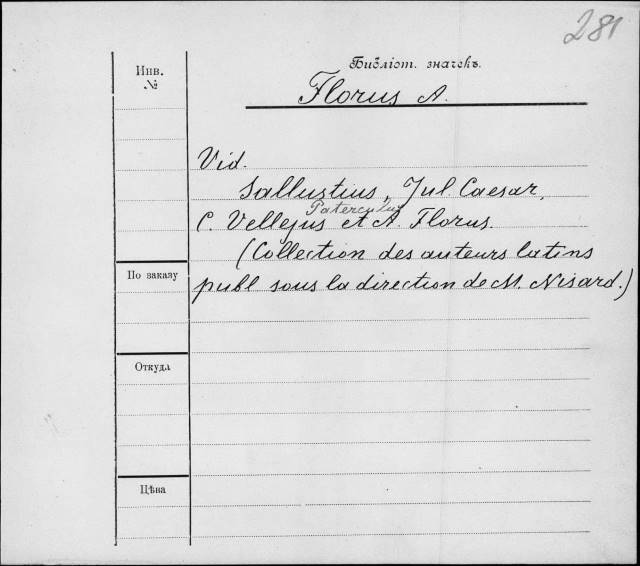 281
Инв.
№
Библіот. значекъ.
Florus A.
Vid.
Sallustius, Jul. Caesar,
Paterculus
C. Vellejus et A. Florus.
(Collection des auteurs latins
По заказу
publ sous la direction de M. Nisard.)
Откуда
Цѣна